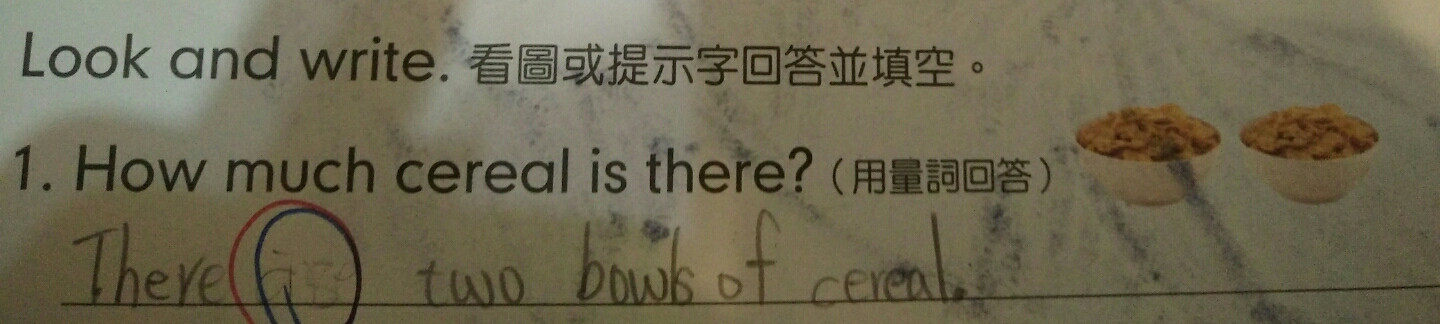 Look and write. 看圖或提示字回答並填空。
1. How much cereal is there?（用量詞回答）
There are two bowls of cereal.